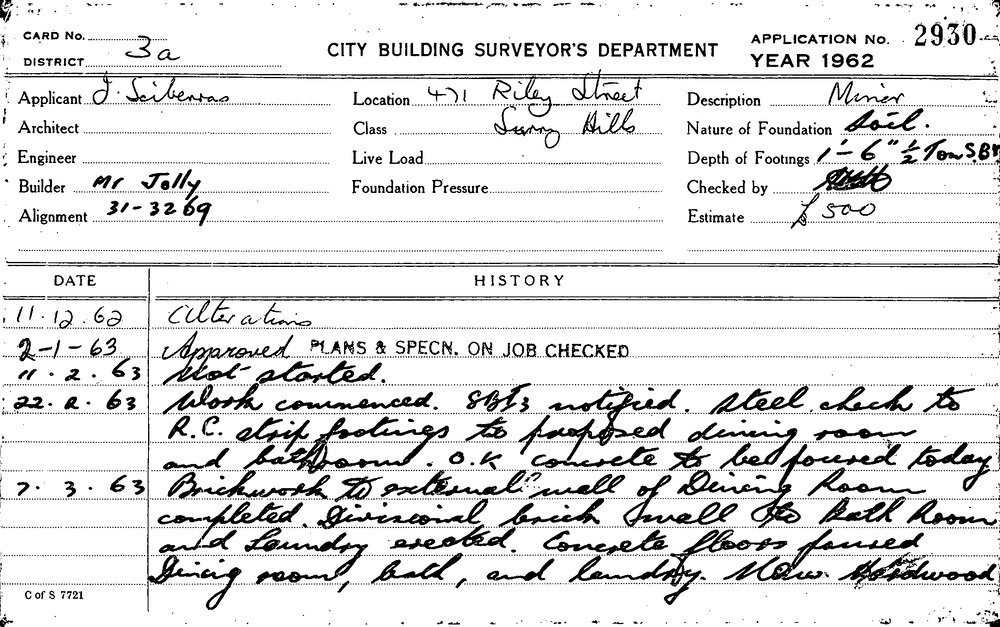 CARD No.
DISTRICT 3a
CITY BUILDING SURVEYOR'S DEPARTMENT
APPLICATION No. 2930
YEAR 1962
Applicant J. Sciberras Location 471 Riley Street Description Minor
Architect Class Surry Hills Nature of Foundation Soil.
Engineer Live Load Depth of Footings 1'-6" ½ Ton S.B.
Builder Mr Jolly Foundation Pressure Checked by
Alignment 31-3269 Estimate £500
DATE HISTORY
11.12.62 Alterations
2-1-63 Approved PLANS & SPECN. ON JOB CHECKED
11.2.63 Not started.
22.2.63 Work commenced. notified. Steel check to
R.C. strip footings to proposed dining room
and bathroom. O.K concrete to be poured today
7.3.63 Brickwork to external wall of Dining Room
completed. Divisional brick wall to Bath Room
and Laundry erected. Concrete floors poured
Dining room, bath, and laundry. New Hardwood
C of S 7721